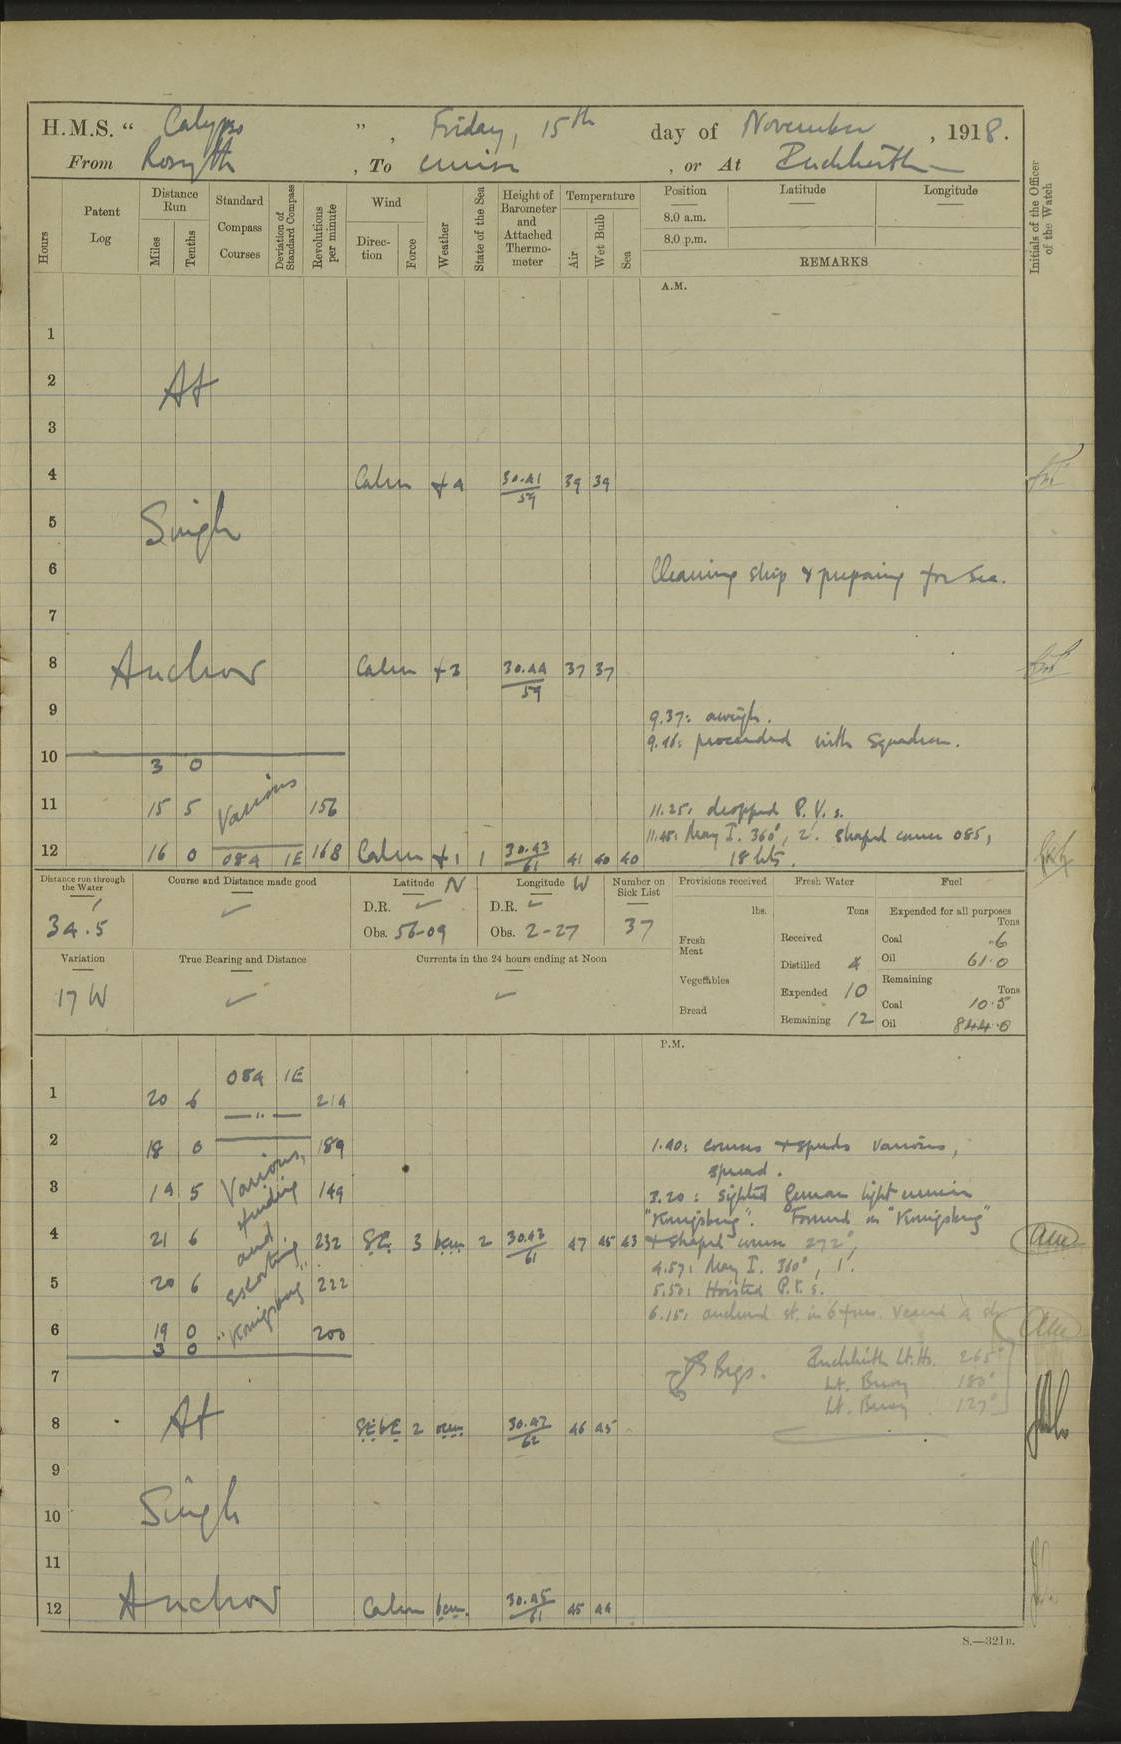 H.M.S. “ Calypso ” , Friday, 15th day of November , 1918.
From Rosyth , To cruise , or At Inchkeith
Hours
Patent Log
Distance Run
Miles
Tenths
Standard Compass Courses
Deviation of Standard Compass
Revolutions per minute
Wind
Direc-tion
Force
Weather
State of the Sea
Height of Barometer and Attached Thermo-meter
Temperature
Air
Wet Bulb
Sea
Position
Latitude
Longitude
8.0 a.m.
8.0 p.m.
REMARKS
Initials of the Officer of the Watch
A.M.
1
2
At
3
4 Calm 30.41/59 39 39
5 Single
6 Cleaning ship & preparing for Sea.
7
8 Anchor Calm 30.44/59 37 37
9 9.37: aweigh.
9.46: proceeded with Squadron.
10 3 0
11 15 5 Various 156 11.25: dropped P.V.s.
11.45: May I. 360°, 2'. Shaped course 085,
12 16 0 084 1E 168 Calm 1 30.43/61 41 40 40 18 kts.
Distance run through the Water
34.5
Course and Distance made good
Latitude N
D.R.
Obs. 56-09
Longitude W
D.R.
Obs. 2-27
Number on Sick List
37
Provisions received
lbs.
Fresh Meat
Vegetables
Bread
Fresh Water
Tons
Received
Distilled 4
Expended 10
Remaining 12
Fuel
Expended for all purposes
Tons
Coal .6
Oil 61.0
Remaining
Tons
Coal 10.5
Oil 844.0
Variation
17 W
True Bearing and Distance
Currents in the 24 hours ending at Noon
P.M.
084 1E
1 20 6 214
— " —
2 18 0 189 1.40: courses & speeds various,
spread.
3 19 5 Various, finding and escorting "Konigsberg" 149 3.20: sighted German light cruiser
"Konigsberg". Formed on "Konigsberg"
4 21 6 232 SE. 3 bcm 2 30.43/61 47 45 43 & shaped course 272°,
4.57: May I. 360°, 1'.
5 20 6 222 5.50: Hoisted P.V.s.
6.15: anchored st. in 6 fms.
6 19 0 200
3 0
7 Bgs. Inchkeith Lt. Ho. 265°
Lt. Buoy 180°
Lt. Buoy 127°
8 At SEbE 2 ocm 30.47/62 46 45
9
10 Single
11
12 Anchor Calm bcm. 30.45/61 45 44
S.—321B.